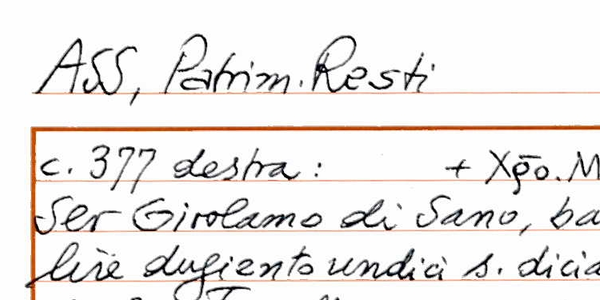 ASS, Patrim. Resti
c. 377 destra: + Xp̄o. M
Ser Girolamo di Sano, ba
lire dugiento undici s. dicia